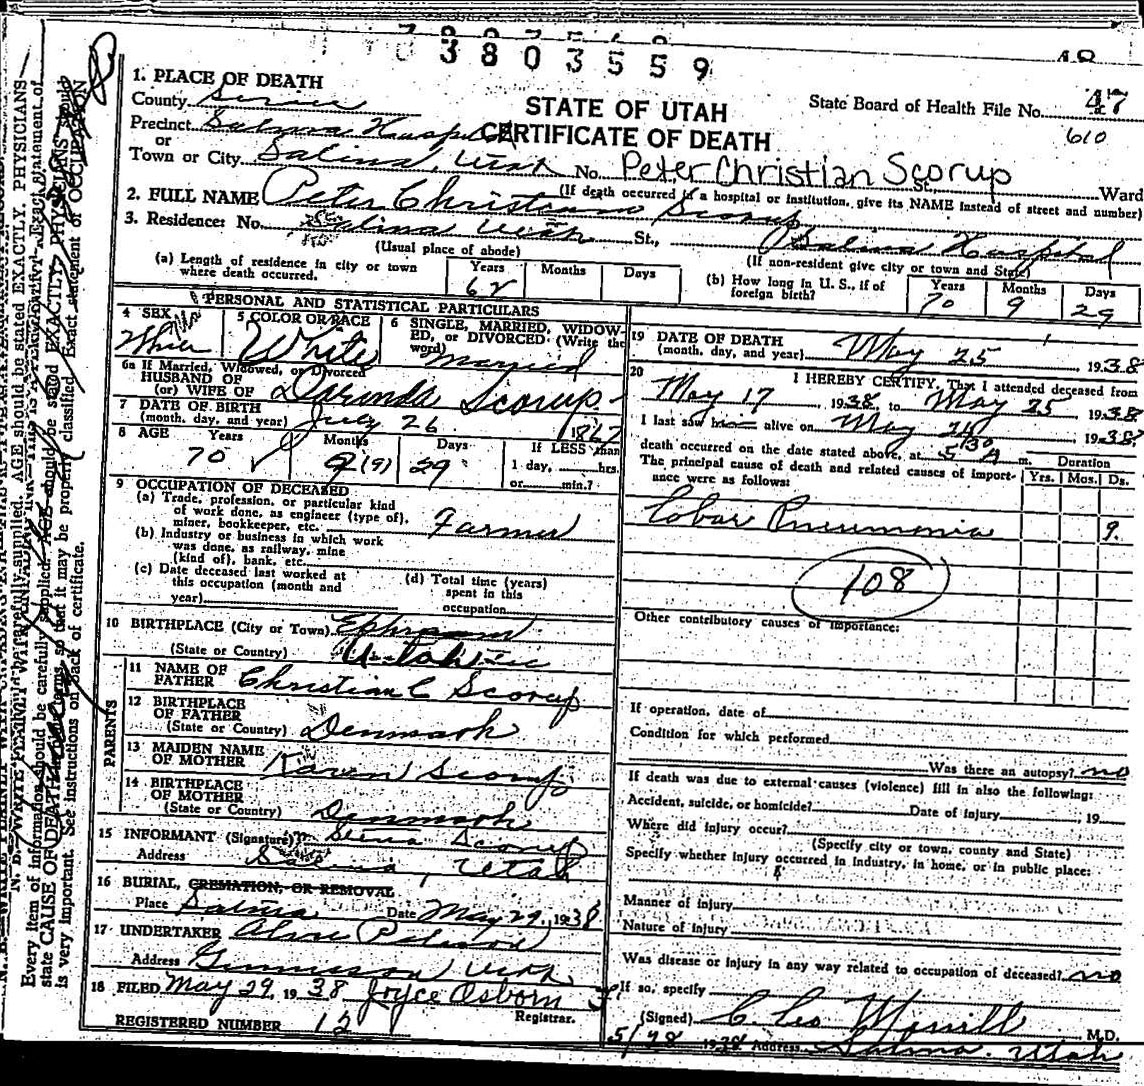 3803559
1. PLACE OF DEATH
County Sevier
STATE OF UTAH
State Board of Health File No. 47
Precinct Salina Hospital
CERTIFICATE OF DEATH
610
or
Town or City Salina, Utah No. Peter Christian Scorup St. Ward
(If death occurred in a hospital or institution, give its NAME instead of street and number)
2. FULL NAME Peter Christian Scorup
3. Residence: No. Salina Utah St., Salina Hospital
(Usual place of abode)
(If non-resident give city or town and State)
(a) Length of residence in city or town where death occurred. Years 68 Months Days
(b) How long in U. S., if of foreign birth? Years 70 Months 9 Days 29
PERSONAL AND STATISTICAL PARTICULARS
4 SEX Male
5 COLOR OR RACE White
6 SINGLE, MARRIED, WIDOWED, or DIVORCED. (Write the word) married
6a If Married, Widowed, or Divorced
HUSBAND OF
(or) WIFE OF Dorinda Scorup
7 DATE OF BIRTH
(month, day, and year) July 26 1867
8 AGE Years 70 Months 9 (9) Days 29 If LESS than 1 day, hrs. or min.?
9 OCCUPATION OF DECEASED
(a) Trade, profession, or particular kind of work done, as engineer (type of), miner, bookkeeper, etc. Farmer
(b) Industry or business in which work was done, as railway, mine (kind of), bank, etc.
(c) Date deceased last worked at this occupation (month and year)
(d) Total time (years) spent in this occupation
10 BIRTHPLACE (City or Town) Ephraim
(State or Country) Utah
PARENTS
11 NAME OF FATHER Christian C Scorup
12 BIRTHPLACE OF FATHER
(State or Country) Denmark
13 MAIDEN NAME OF MOTHER Karen Scorup
14 BIRTHPLACE OF MOTHER
(State or Country) Denmark
15 INFORMANT (Signature) Scorup
Address Salina, Utah
16 BURIAL, CREMATION, OR REMOVAL
Place Salina Date May 29, 1938
17 UNDERTAKER
Address Gunnison Utah
18 FILED May 29, 1938 Joyce Osborn
Registrar.
REGISTERED NUMBER 12
19 DATE OF DEATH
(month, day, and year) May 25 1938
20 I HEREBY CERTIFY, That I attended deceased from
May 17 1938, to May 25, 1938
I last saw him alive on May 24 1938
death occurred on the date stated above, at 5 30 A m. Duration
The principal cause of death and related causes of importance were as follows: Yrs. Mos. Ds.
Lobar Pneumonia 9.
108
Other contributory causes of importance:
If operation, date of
Condition for which performed
Was there an autopsy? no
If death was due to external causes (violence) fill in also the following:
Accident, suicide, or homicide? Date of injury , 19
Where did injury occur?
(Specify city or town, county and State)
Specify whether injury occurred in industry, in home, or in public place:
Manner of injury
Nature of injury
Was disease or injury in any way related to occupation of deceased? no
If so, specify
(Signed) C. Leo Merrill M.D.
5/28 1938 Address Salina. Utah
Every item of information should be carefully supplied. AGE should be stated EXACTLY. PHYSICIANS should
state CAUSE OF DEATH in plain terms, so that it may be properly classified. Exact statement of OCCUPATION
is very important. See instructions on back of certificate.